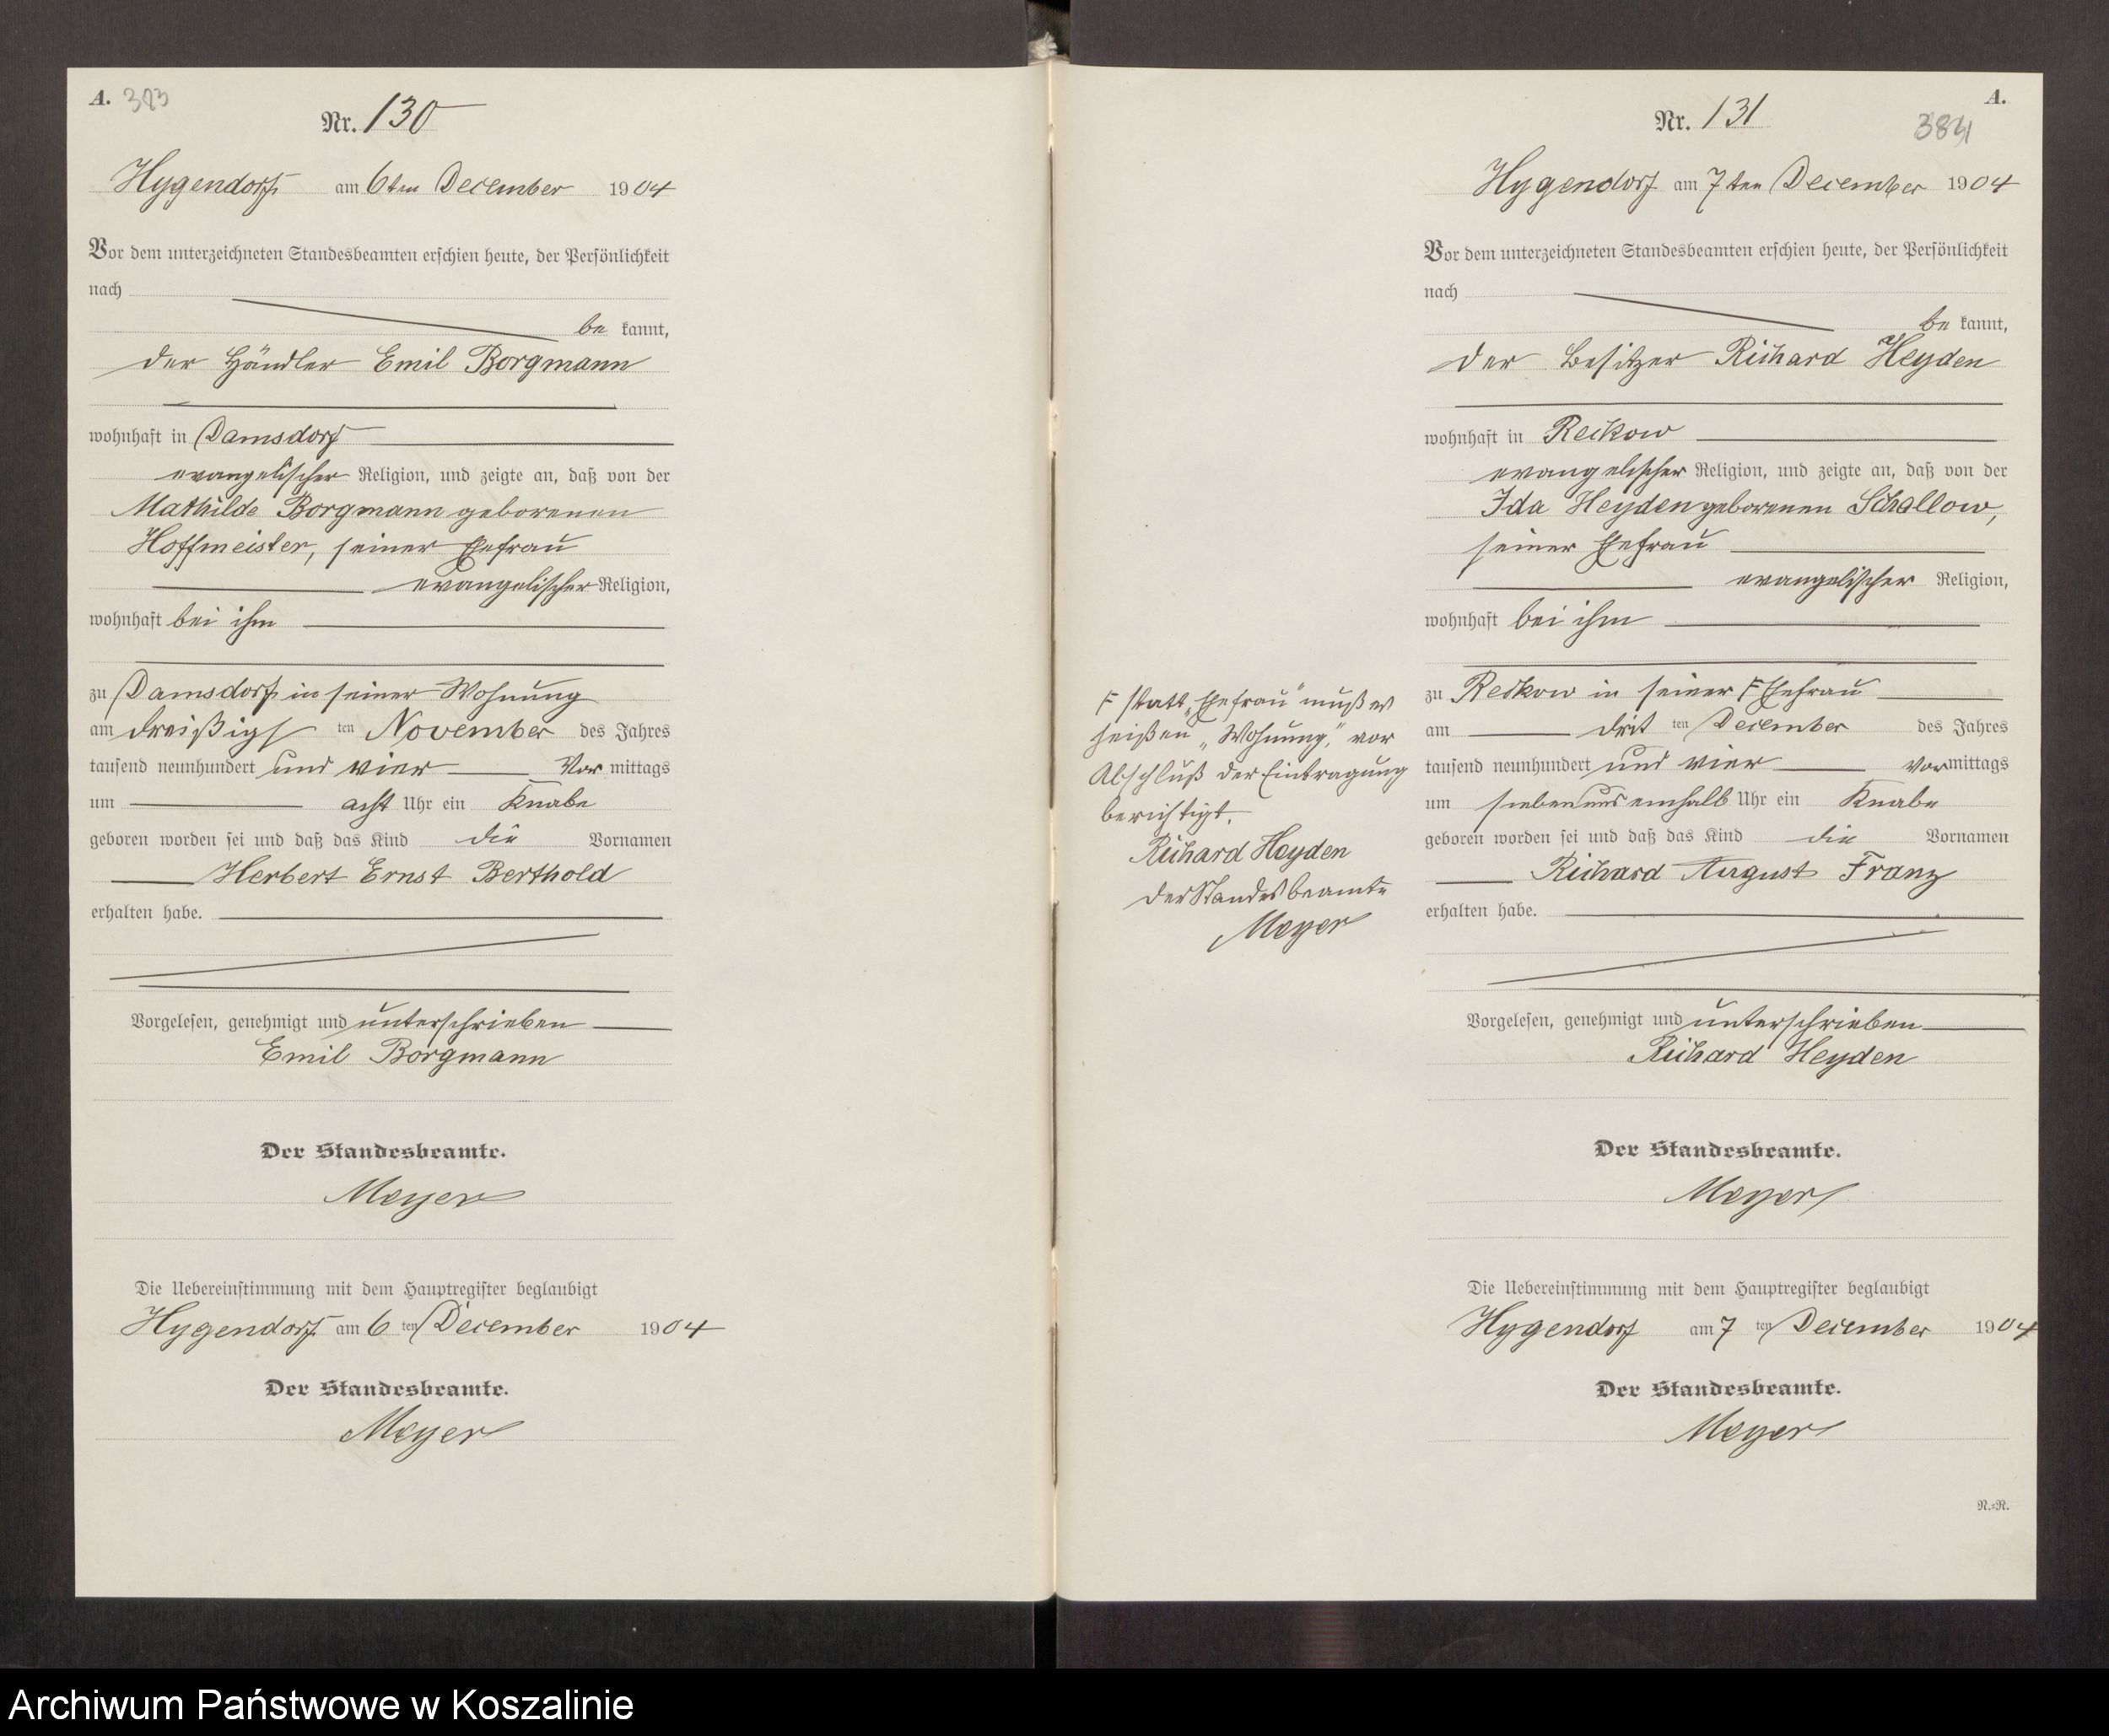 A. 383
Nr. 130
Hygendorf am 6ten December 1904
Vor dem unterzeichneten Standesbeamten erschien heute, der Persönlichkeit
nach
be kannt,
der Händler Emil Borgmann
wohnhaft in Damsdorf
evangelischer Religion, und zeigte an, daß von der
Mathilde Borgmann geborenen
Hoffmeister, seiner Ehefrau
evangelischer Religion,
wohnhaft bei ihm
zu Damsdorf in seiner Wohnung
am dreißigs ten November des Jahres
tausend neunhundert und vier Vor mittags
um acht Uhr ein Knabe
geboren worden sei und daß das Kind die Vornamen
Herbert Ernst Berthold
erhalten habe.
Vorgelesen, genehmigt und unterschrieben
Emil Borgmann
Der Standesbeamte.
Meyer
Die Uebereinstimmung mit dem Hauptregister beglaubigt
Hygendorf am 6 ten December 1904
Der Standesbeamte.
Meyer
A.
Nr. 131
Hygendorf am 7ten December 1904
Vor dem unterzeichneten Standesbeamten erschien heute, der Persönlichkeit
nach
be kannt,
der Besitzer Richard Heyden
wohnhaft in Reckow
evangelischer Religion, und zeigte an, daß von der
Ida Heyden geborenen Schallow,
seiner Ehefrau
evangelischer Religion,
wohnhaft bei ihm
zu Reckow in seiner F Ehefrau
am drit ten December des Jahres
tausend neunhundert und vier vor mittags
um sieben und einhalb Uhr ein Knabe
geboren worden sei und daß das Kind die Vornamen
Richard August Franz
erhalten habe.
F statt „Ehefrau" muß es
heißen „Wohnung," vor
Abschluß der Eintragung
berichtigt.
Richard Heyden
Der Standesbeamte
Meyer
Vorgelesen, genehmigt und unterschrieben
Richard Heyden
Der Standesbeamte.
Meyer
Die Uebereinstimmung mit dem Hauptregister beglaubigt
Hygendorf am 7 ten December 1904
Der Standesbeamte.
Meyer
N.=R.
Archiwum Państwowe w Koszalinie